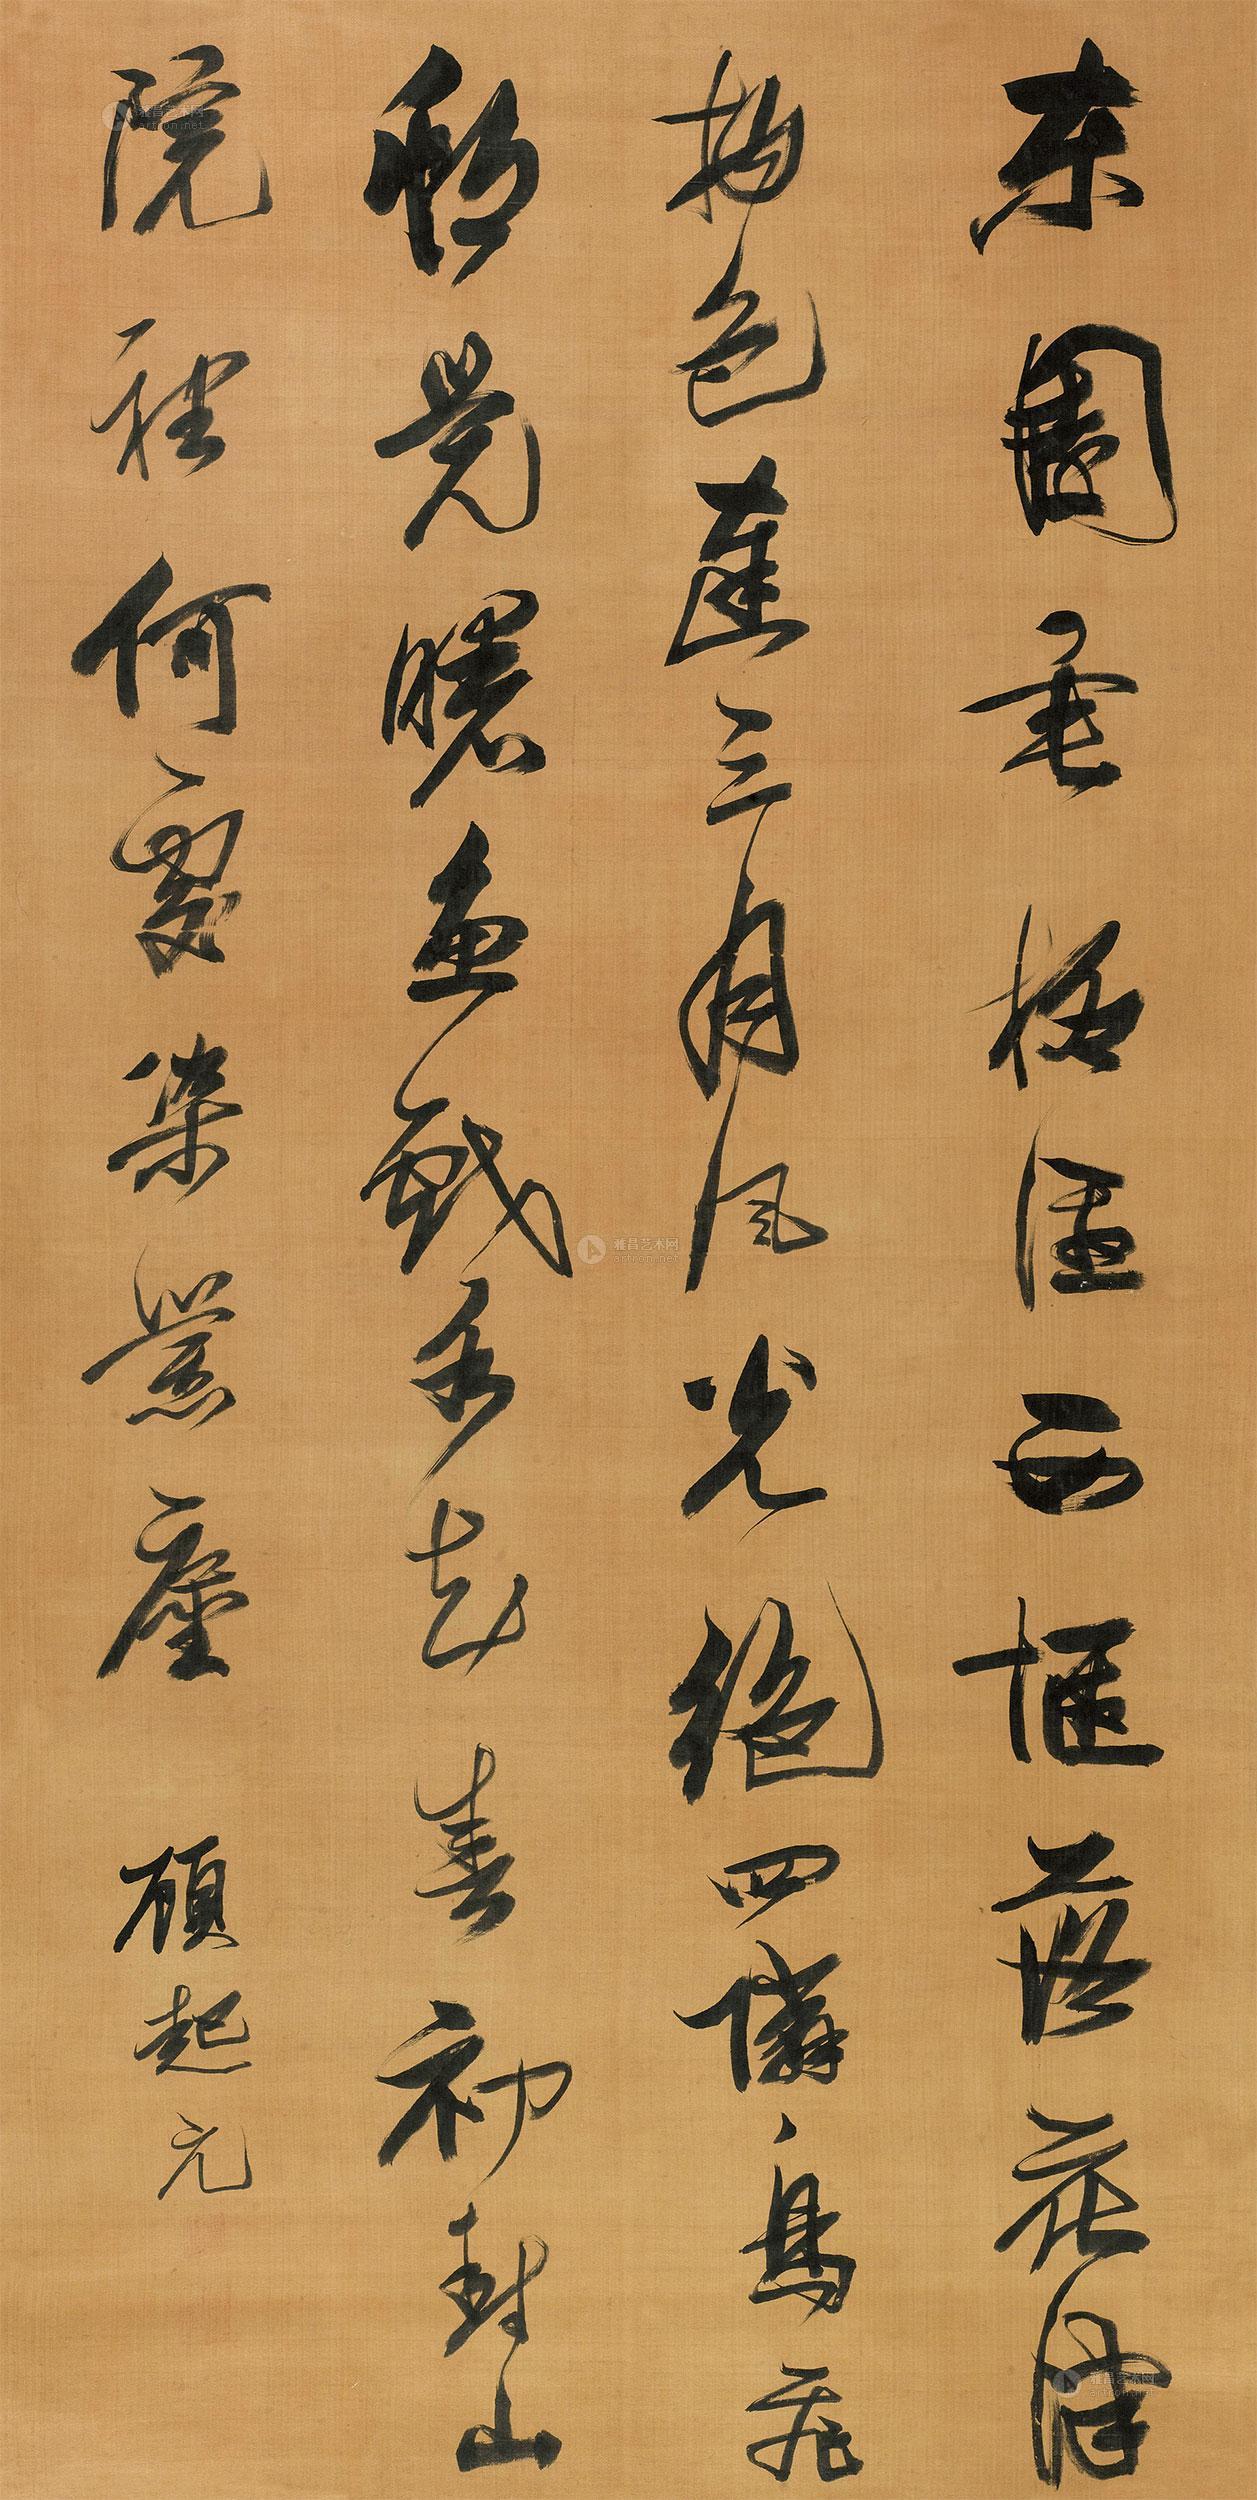 東園垂柳徑西堰落花津
物色連三月風光絕四隣鳥飛
邨覺曙魚戲水知春初轉山
院裡何處染囂塵 顧起元
雅昌艺术网
artron.net
雅昌艺术网
artron.net
雅昌艺术网
artron.net